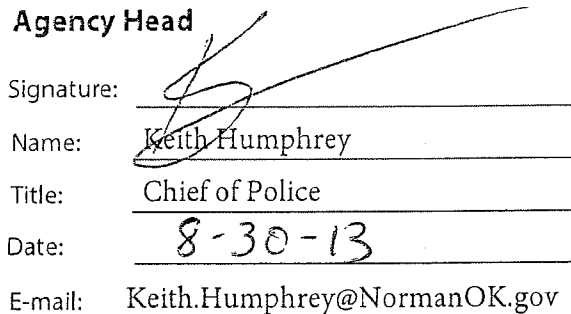 Agency Head
Signature:
Name: Keith Humphrey
Title: Chief of Police
Date: 8-30-13
E-mail: Keith.Humphrey@NormanOK.gov